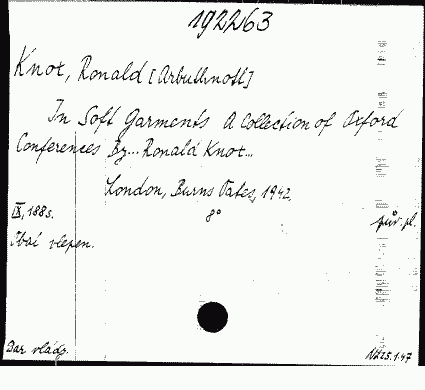 192263
Knot, Ronald [Arbuthnott]
In Soft Garments A Collection of Oxford
Conferences By... Ronald Knot...
London, Burns Oates, 1942.
8°
IX, 188 s.
pův. pl.
Obal vlepen.
Dar vlády.
25.1.47